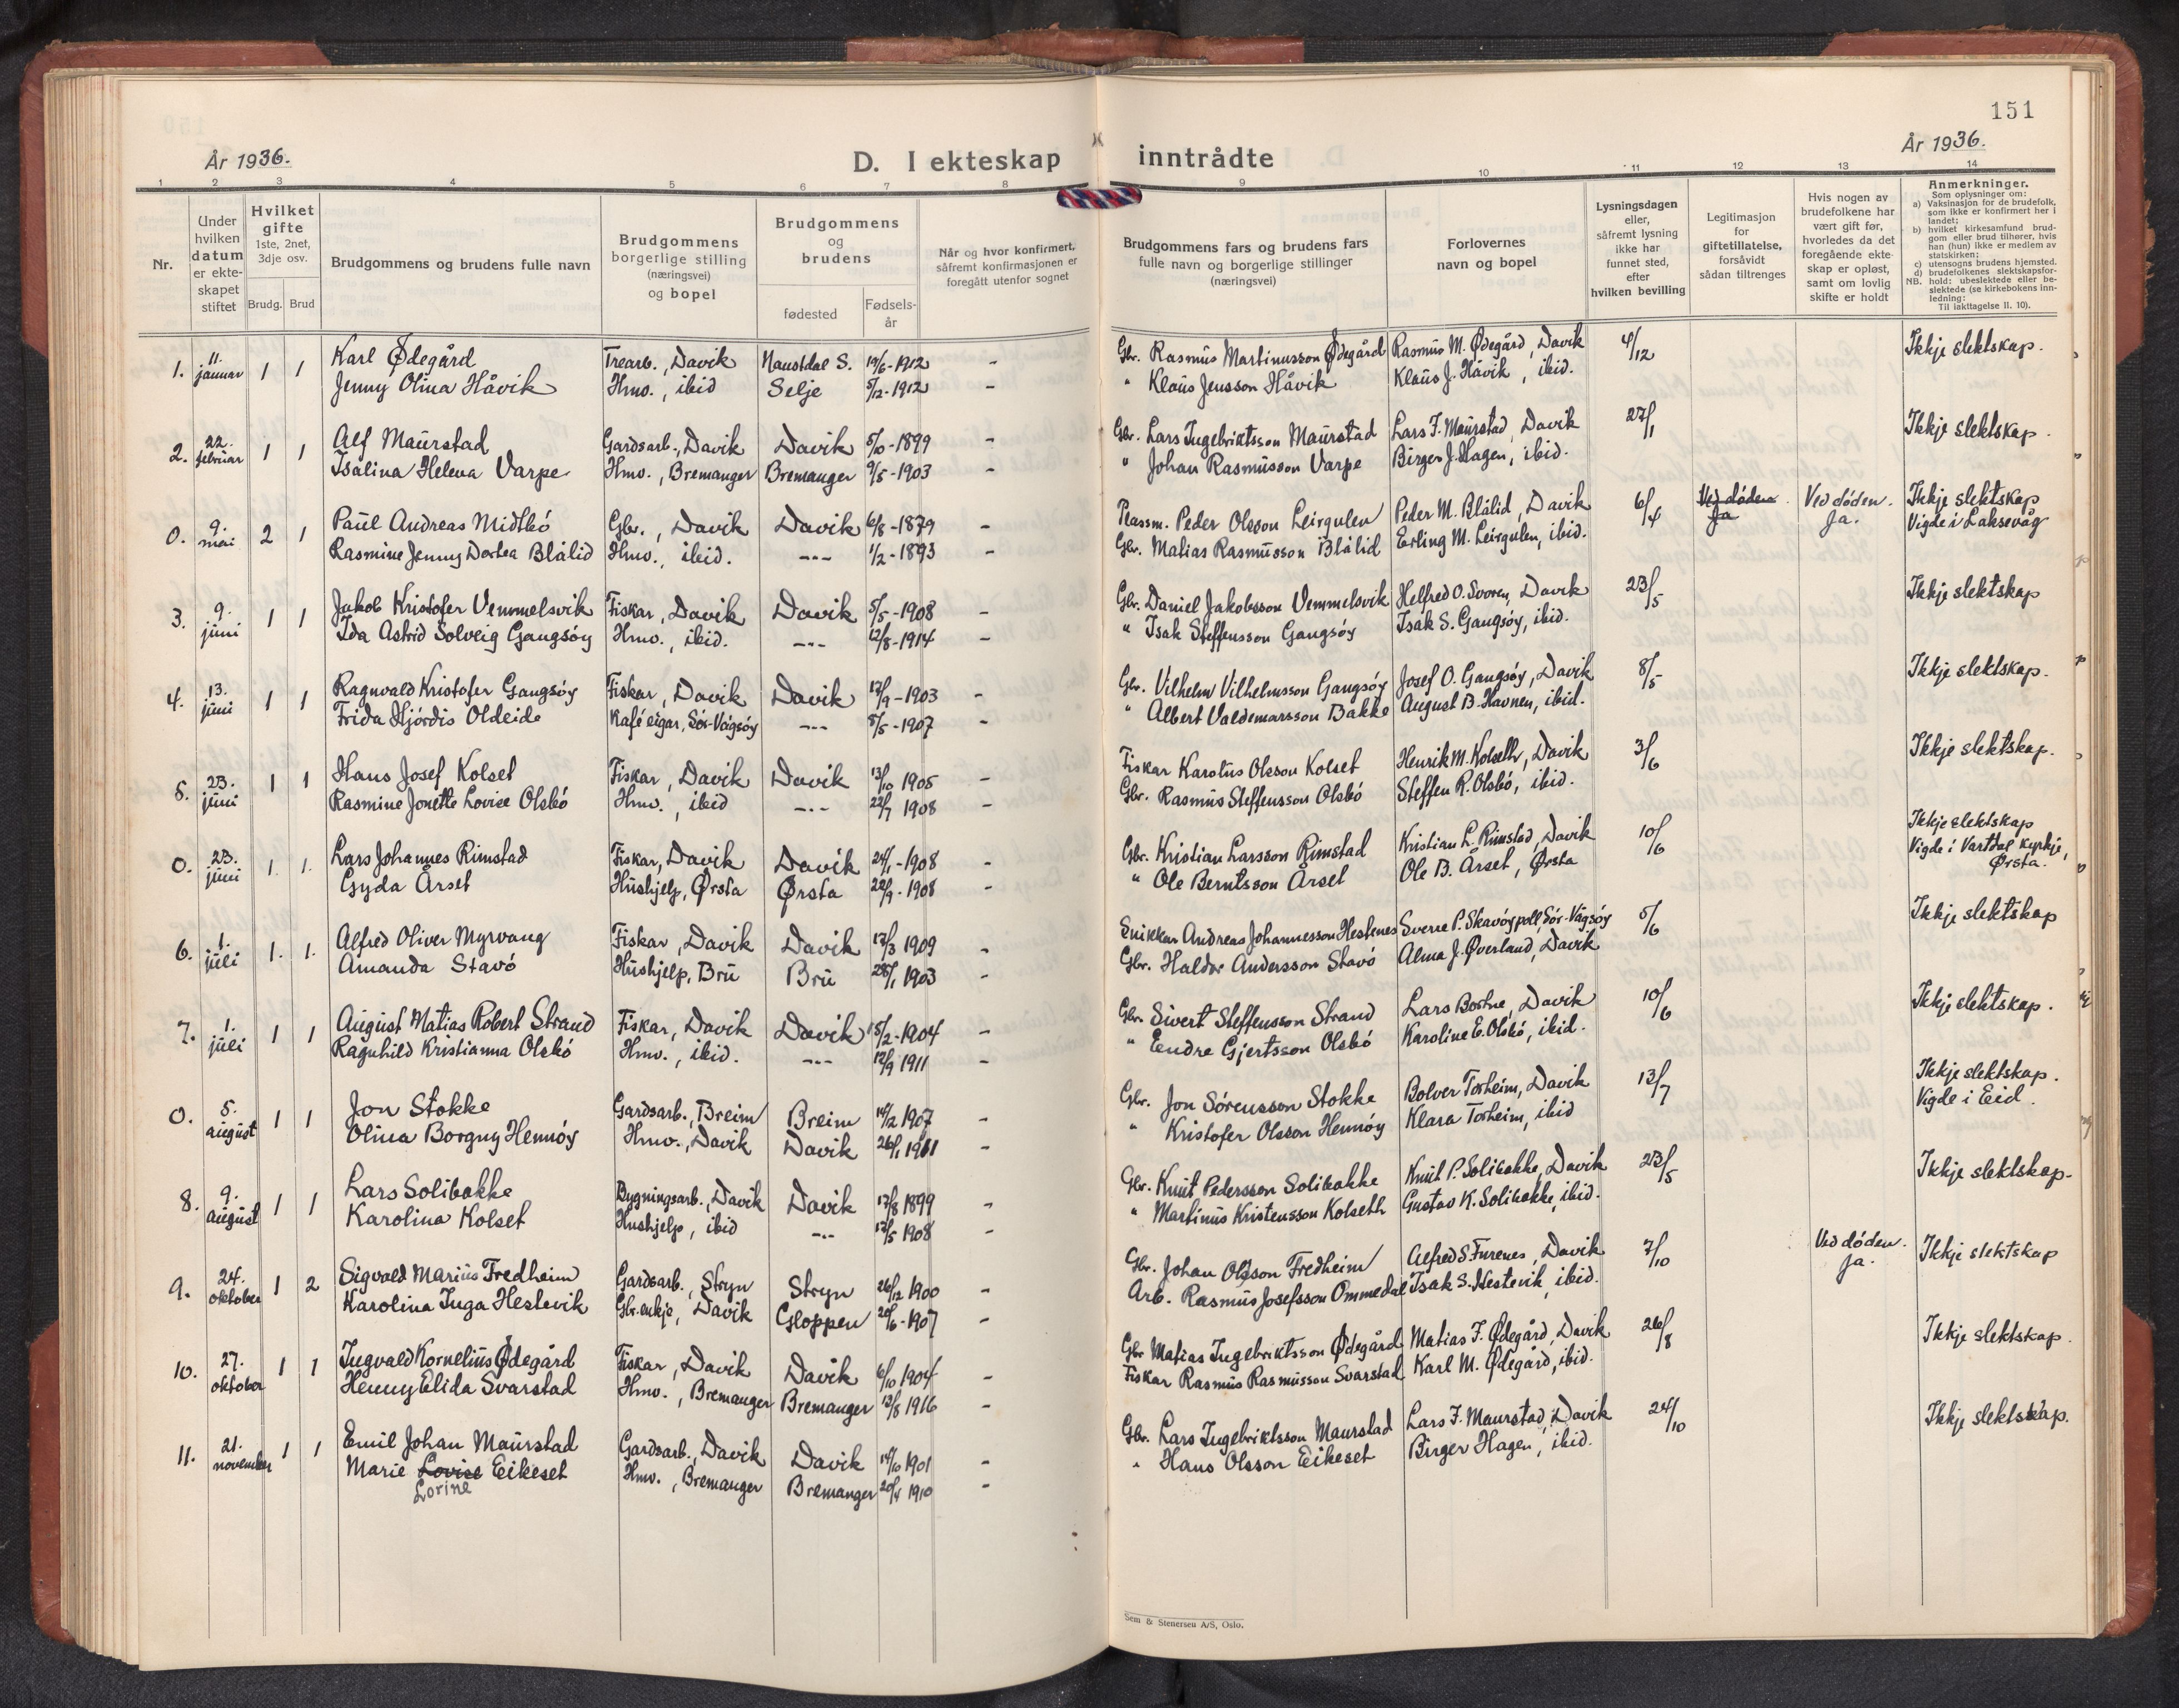 151
År 1936.
D. I ekteskap inntrådte
År 1936.
1 2 3 4 5 6 7 8 9 10 11 12 13 14
Nr.
Under hvilken datum er ekte-skapet stiftet
Hvilket gifte 1ste, 2net, 3dje osv.
Brudg. Brud
Brudgommens og brudens fulle navn
Brudgommens borgerlige stilling (næringsvei) og bopel
Brudgommens og brudens
fødested
Fødsels-år
Når og hvor konfirmert, såfremt konfirmasjonen er foregått utenfor sognet
Brudgommens fars og brudens fars fulle navn og borgerlige stillinger (næringsvei)
Forlovernes navn og bopel
Lysningsdagen eller, såfremt lysning ikke har funnet sted, efter hvilken bevilling
Legitimasjon for giftetillatelse, forsåvidt sådan tiltrenges
Hvis nogen av brudefolkene har vært gift før, hvorledes da det foregående ekte-skap er opløst, samt om lovlig skifte er holdt
Anmerkninger.
Som oplysninger om:
a) Vaksinasjon for de brudefolk, som ikke er konfirmert her i landet;
b) hvilket kirkesamfund brud-gom eller brud tilhører, hvis han (hun) ikke er medlem av statskirken;
c) utensogns brudens hjemsted.
d) brudefolkenes slektskapsfor-
NB. hold: ubeslektede eller be-slektede (se kirkebokens inn-ledning: Til iakttagelse II. 10).
1. 11. januar 1 1 Karl Ødegård Trearb., Davik Naustdal S. 19/6-1912 - Gbr. Rasmus Martinusson Ødegård Rasmus M. Ødegård, Davik 4/12 Ikkje slektskap.
Jenny Olina Håvik Hmo., ibid Selje 5/12-1912 - " Klaus Jensson Håvik Klaus J. Håvik, ibid.
2. 22. februar 1 1 Alf Maurstad Gardsarb., Davik Davik 5/10-1899 - Gbr. Lars Ingebriktsson Maurstad Lars I. Maurstad, Davik 27/1 Ikkje slektskap.
Isalina Helena Varpe Hmo., Bremanger Bremanger 9/5-1903 - " Johan Rasmusson Varpe Birger J. Hagen, ibid.
0. 9. mai 2 1 Paul Andreas Midtbö Gbr., Davik Davik 6/8-1879 - Plassm. Peder Olsson Leirgulen Peder M. Blålid, Davik 6/4 Ved döden Ja Ved döden. Ja. Ikkje slektskap
Rasmine Jenny Dortea Blålid Hmo., ibid. -"- 1/2-1893 - Gbr. Matias Rasmusson Blålid Erling M. Leirgulen, ibid. Vigde i Laksevåg
3. 9. juni 1 1 Jakob Kristofer Vemmelsvik Fiskar, Davik Davik 5/5-1908 - Gbr. Daniel Jakobsson Vemmelsvik Helfred O. Svoren, Davik 23/5 Ikkje slektskap
Ida Astrid Solveig Gangsöy Hmo., ibid. -"- 12/8-1914 - " Isak Steffensson Gangsöy Isak S. Gangsöy, ibid.
4. 13. juni 1 1 Ragnvald Kristofer Gangsöy Fiskar, Davik Davik 17/9-1903 - Gbr. Vilhelm Vilhelmsson Gangsöy Josef O. Gangsöy, Davik 8/5 Ikkje slektskap.
Frida Hjördis Oldeide Kaféeigar, Sör-Vågsöy -"- 8/5-1907 - " Albert Valdemarsson Bakke August B. Havnen, ibid.
5. 23. juni 1 1 Hans Josef Kolset Fiskar, Davik Davik 13/10 1905 - Fiskar Karolus Olsson Kolset Henrik M. Kolseth, Davik 3/6 Ikkje slektskap.
Rasmine Jonette Lovise Olsbö Hmo., ibid -"- 22/7 1908 - Gbr. Rasmus Steffensson Olsbö Steffen R. Olsbö, ibid.
0. 23. juni 1. 1. Lars Johannes Rimstad Fiskar, Davik Davik 24/1-1908 - Gbr. Kristian Larsson Rimstad Kristian L. Rimstad, Davik 10/6 Ikkje slektskap
Gyda Årset Hushjelp, Ørsta Ørsta 22/9-1908 - " Ole Berntsson Årset Ole B. Årset, Ørsta Vigde i Vartdal kyrkje, Ørsta.
6. 1. juli 1. 1. Alfred Oliver Myrvang Fiskar, Davik Davik 17/3 1909 - Snikkar Andreas Johannesson Hestenes Sverre P. Skavöypoll, Sör-Vågsöy 5/6 Ikkje slektskap
Amanda Stavö Hushjelp, Bru Bru 28/1 1903 - Gbr. Haldor Andersson Stavö Alma J. Øverland, Davik
7. 1. juli 1 1 August Matias Robert Strand Fiskar, Davik Davik 15/2-1904 - Gbr. Sivert Steffensson Strand Lars Bortne, Davik 10/6 Ikkje slektskap.
Ragnhild Kristianna Olsbö Hmo., ibid. -"- 12/9 1911 - " Endre Gjertsson Olsbö Karoline E. Olsbö, ibid.
0. 5. august 1 1 Jon Stokke Gardsarb., Breim Breim 14/2 1907 - Gbr. Jon Sörensson Stokke Bolver Torheim, Davik 13/7 Ikkje slektskap.
Olina Borgny Hennöy Hmo., Davik Davik 26/1 1911 - " Kristofer Olsson Hennöy Klara Torheim, ibid Vigde i Eid.
8. 9. august 1 1 Lars Solibakke Bygningsarb., Davik Davik 17/8 1899 - Gbr. Knut Pedersson Solibakke Knut P. Solibakke, Davik 23/5 Ikkje slektskap.
Karolina Kolset Hushjelp, ibid -"- 12/5 1908 - " Martinus Kristensson Kolseth Gustav K. Solibakke, ibid.
9. 24. oktober 1 2 Sigvald Marius Fredheim Gardsarb., Stryn Stryn 26/12 1900 - Gbr. Johan Olsson Fredheim Alfred S. Furenes, Davik 7/10 Ved döden. Ja. Ikkje slektskap
Karolina Inga Hestevik Gbr.enkje, Davik Gloppen 20/6-1907 - Arb. Rasmus Josefsson Ommedal Isak S. Hestevik, ibid.
10. 27. oktober 1 1 Ingvald Kornelius Ødegård Fiskar, Davik Davik 6/10 1904 - Gbr Matias Ingebriktsson Ødegård Matias I. Ødegård, Davik 26/8 Ikkje slektskap.
Henny Elida Svarstad Hmo., Bremanger Bremanger 13/8 1916 - Fiskar Rasmus Rasmusson Svarstad Karl M. Ødegård, ibid.
11. 21. november 1 1 Emil Johan Maurstad Gardsarb., Davik Davik 14/10 1901 - Gbr. Lars Ingebriktsson Maurstad Lars I. Maurstad, Davik 24/10 Ikkje slektskap.
Marie Lovise Eikeset Hmo., Bremanger Bremanger 20/4 1910 - " Hans Olsson Eikeset Birger Hagen, ibid.
Lorine
Sem & Stenersen A/S, Oslo.